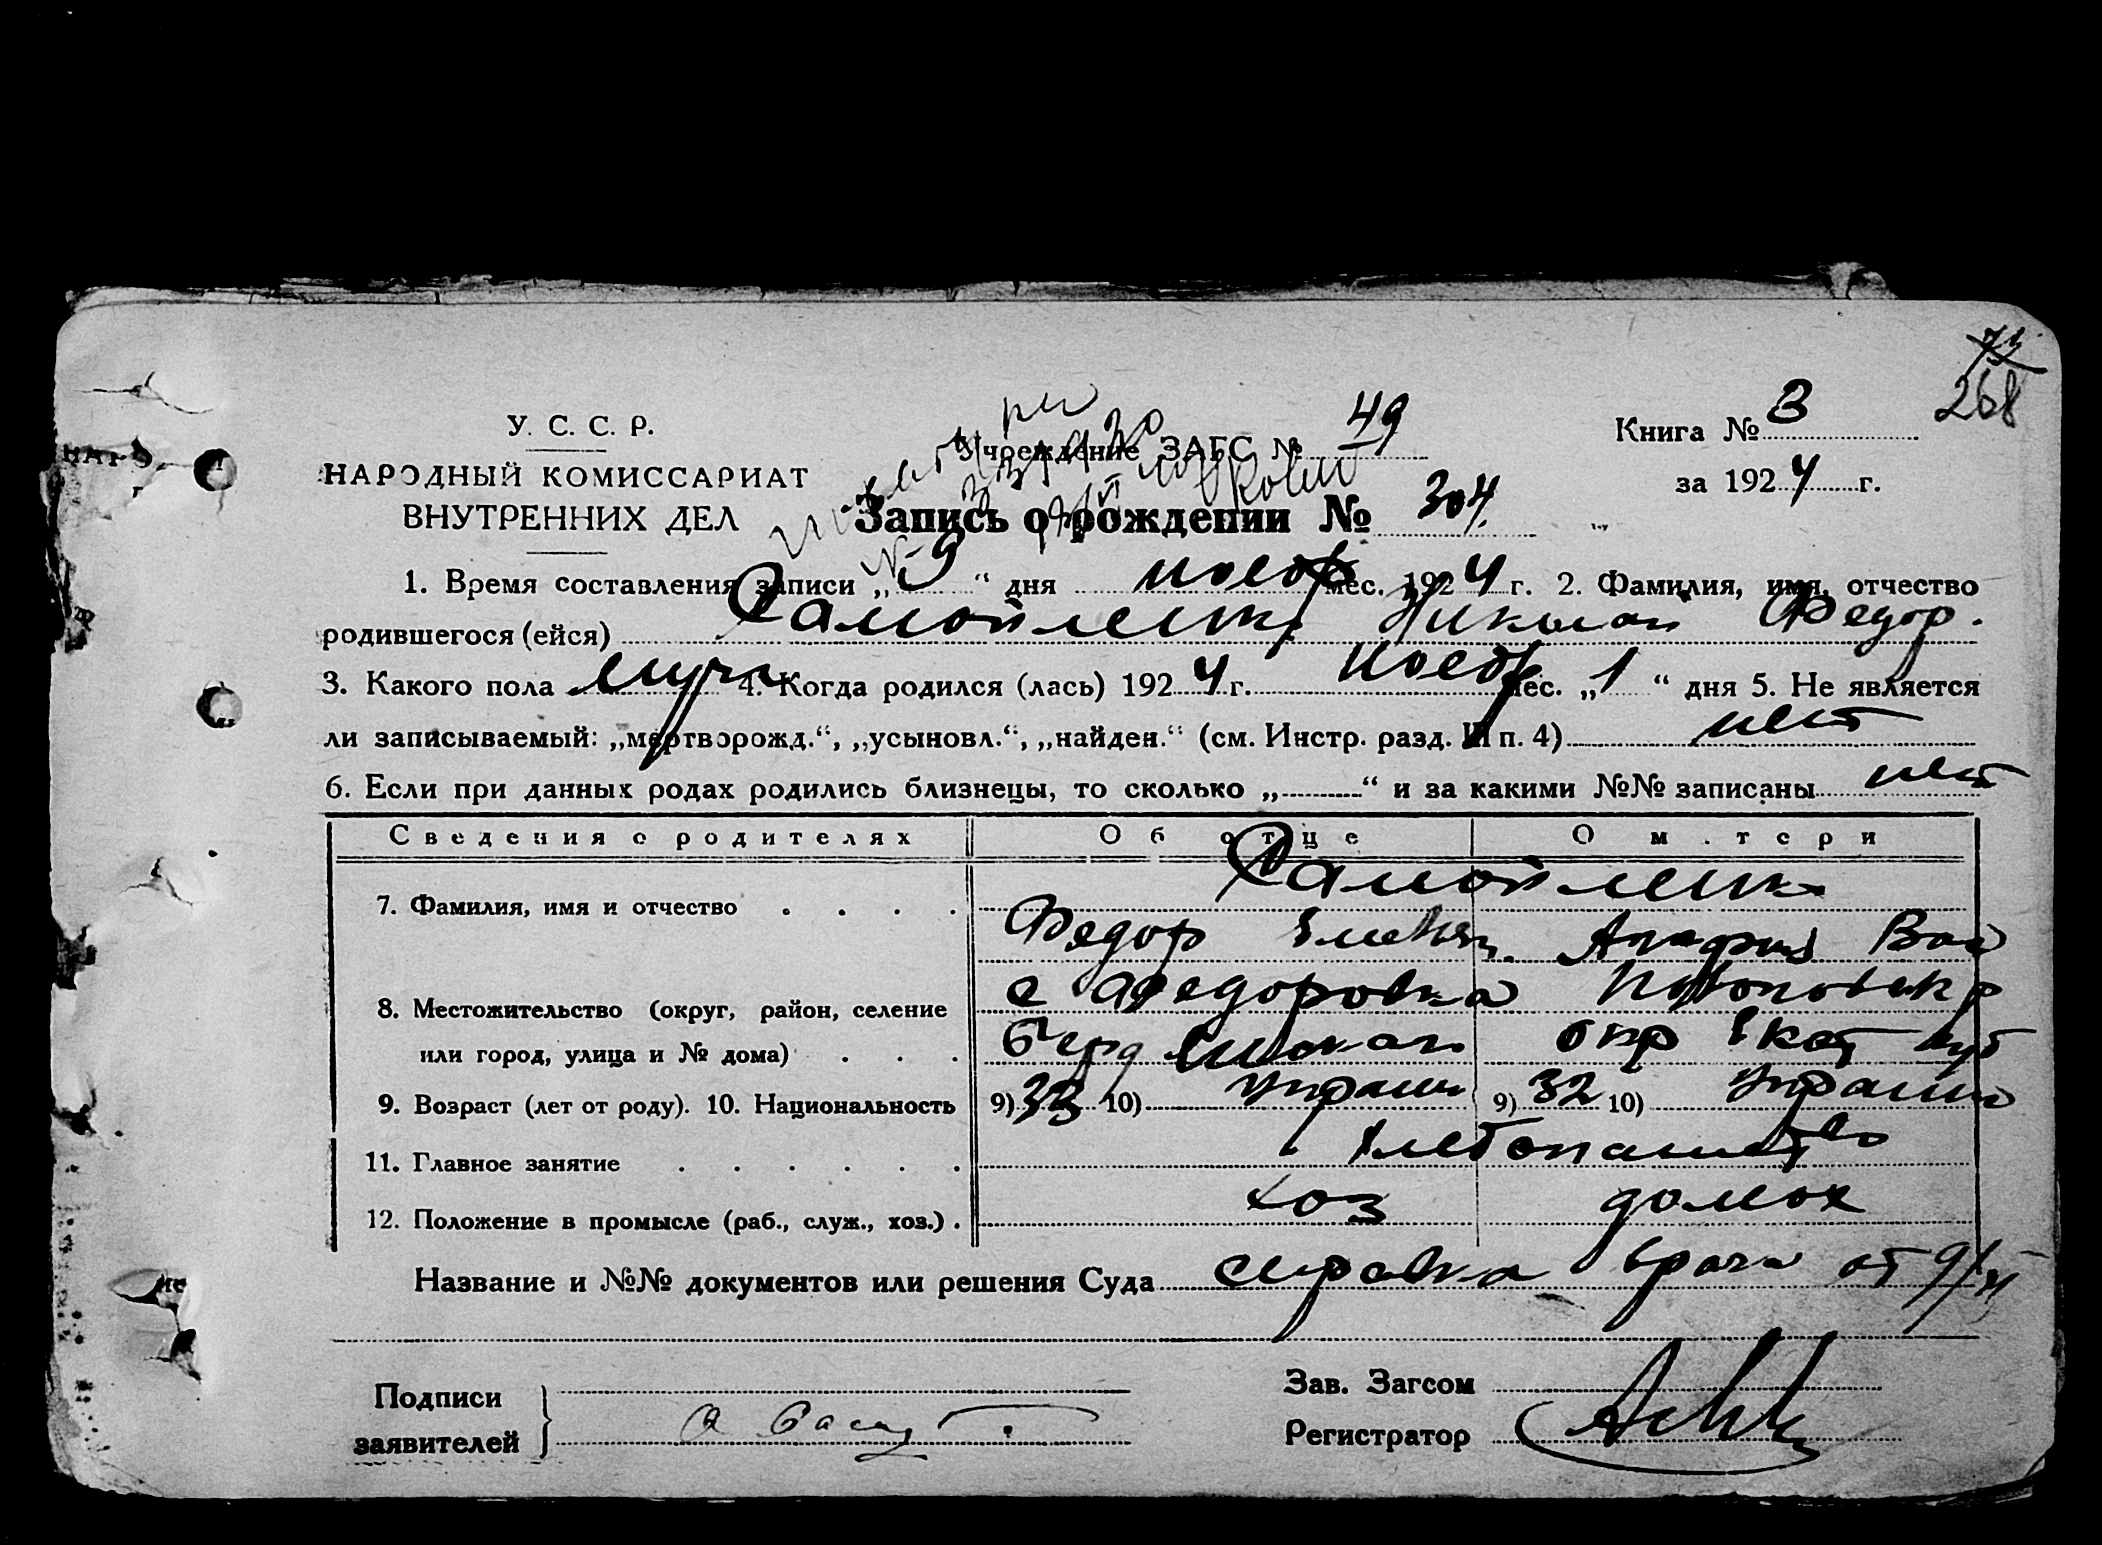 73
268
У. С. С. Р.
НАРОДНЫЙ КОМИССАРИАТ
ВНУТРЕННИХ ДЕЛ
Учреждение ЗАГС № 49
Книга № 3
за 1924 г.
Запись о рождении № 304
1. Время составления записи „9“ дня ноебр мес. 1924 г. 2. Фамилия, имя, отчество
родившегося (ейся) Самойленко Николай Федор.
3. Какого пола муж 4. Когда родился (лась) 1924 г. ноебр мес. „1“ дня 5. Не является
ли записываемый: „мертворожд.“, „усыновл.“, „найден.“ (см. Инстр. разд. III п. 4) нет
6. Если при данных родах родились близнецы, то сколько „ “ и за какими №№ записаны нет
Сведения о родителях Об отце О м.тери
Самойленко
7. Фамилия, имя и отчество
Федор
с Федоровка
8. Местожительство (округ, район, селение
или город, улица и № дома)
окр Екат губ
9. Возраст (лет от роду). 10. Национальность 9) 33 10) Украин 9) 32 10) Украин
11. Главное занятие Хлебопашество
12. Положение в промысле (раб., служ., хоз.) . хоз домох
Название и №№ документов или решения Суда справка врача от 9/XI
Подписи
заявителей
Зав. Загсом
Регистратор